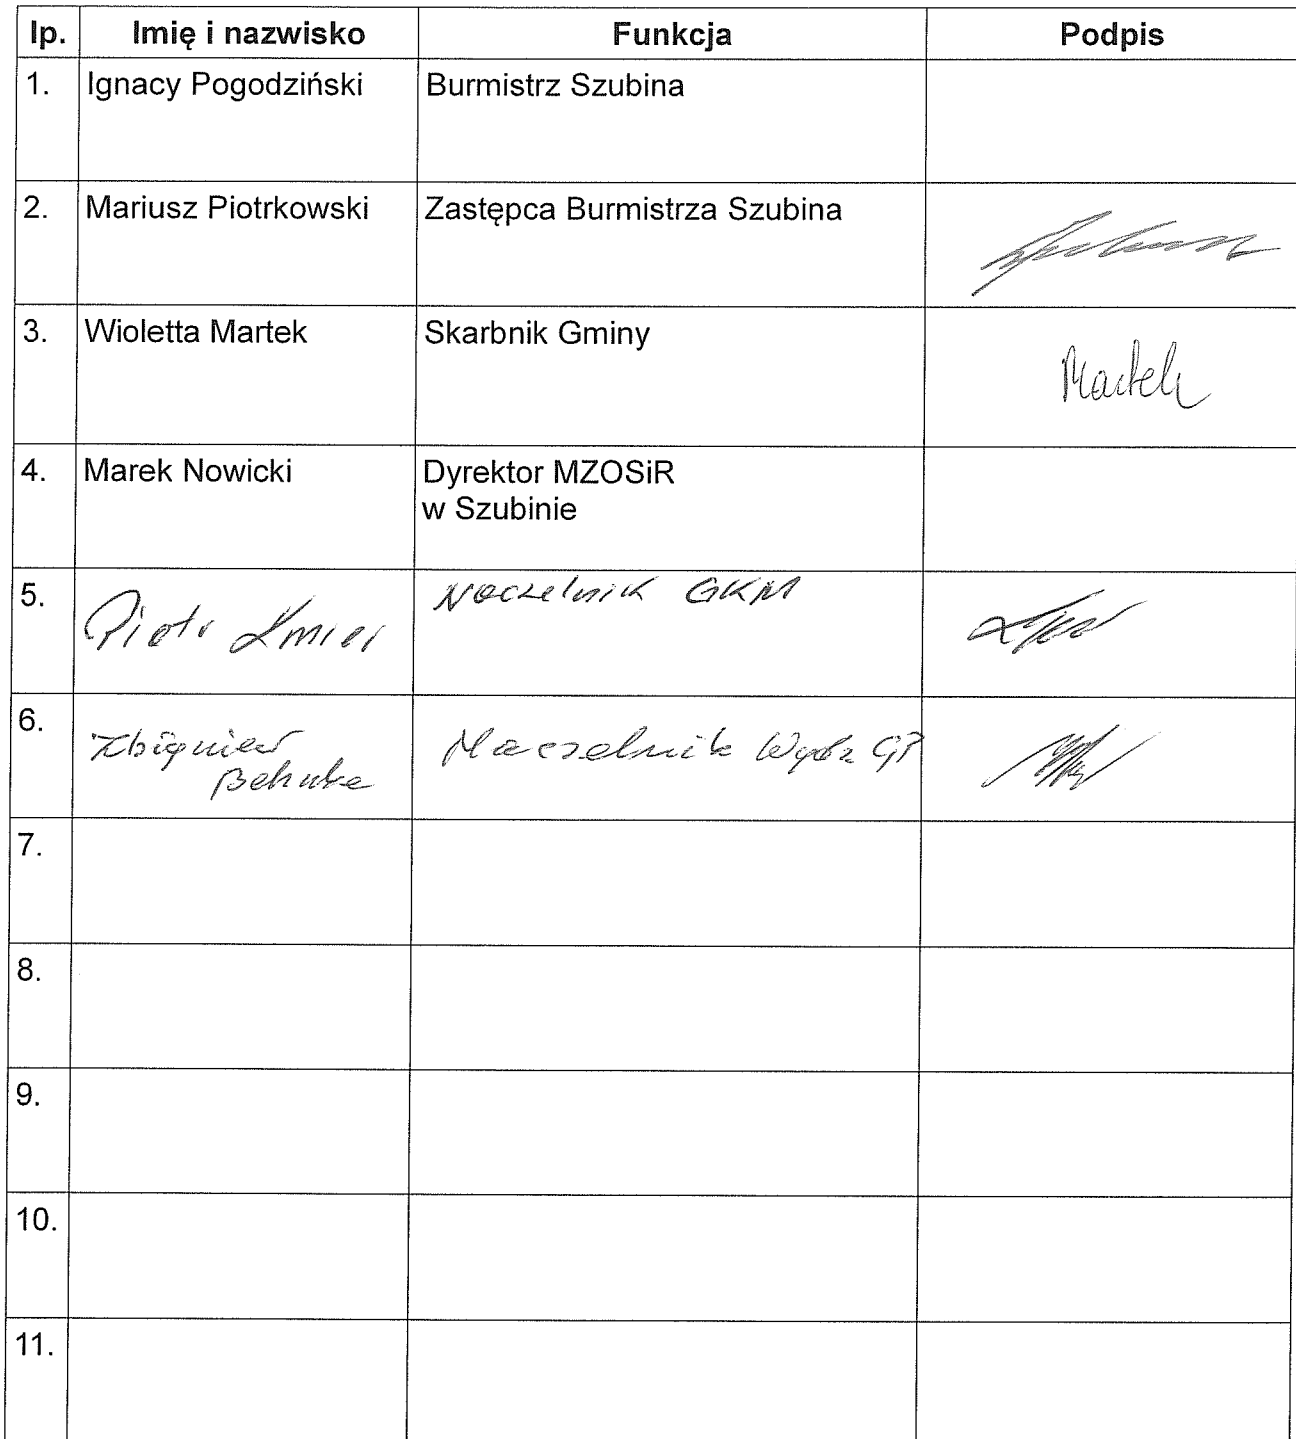 lp. Imię i nazwisko Funkcja Podpis
1. Ignacy Pogodziński Burmistrz Szubina
2. Mariusz Piotrkowski Zastępca Burmistrza Szubina
3. Wioletta Martek Skarbnik Gminy Martek
4. Marek Nowicki Dyrektor MZOSiR
w Szubinie
5. Piotr Naczelnik GKM
6. Zbigniew Naczelnik Wydz GP
7.
8.
9.
10.
11.